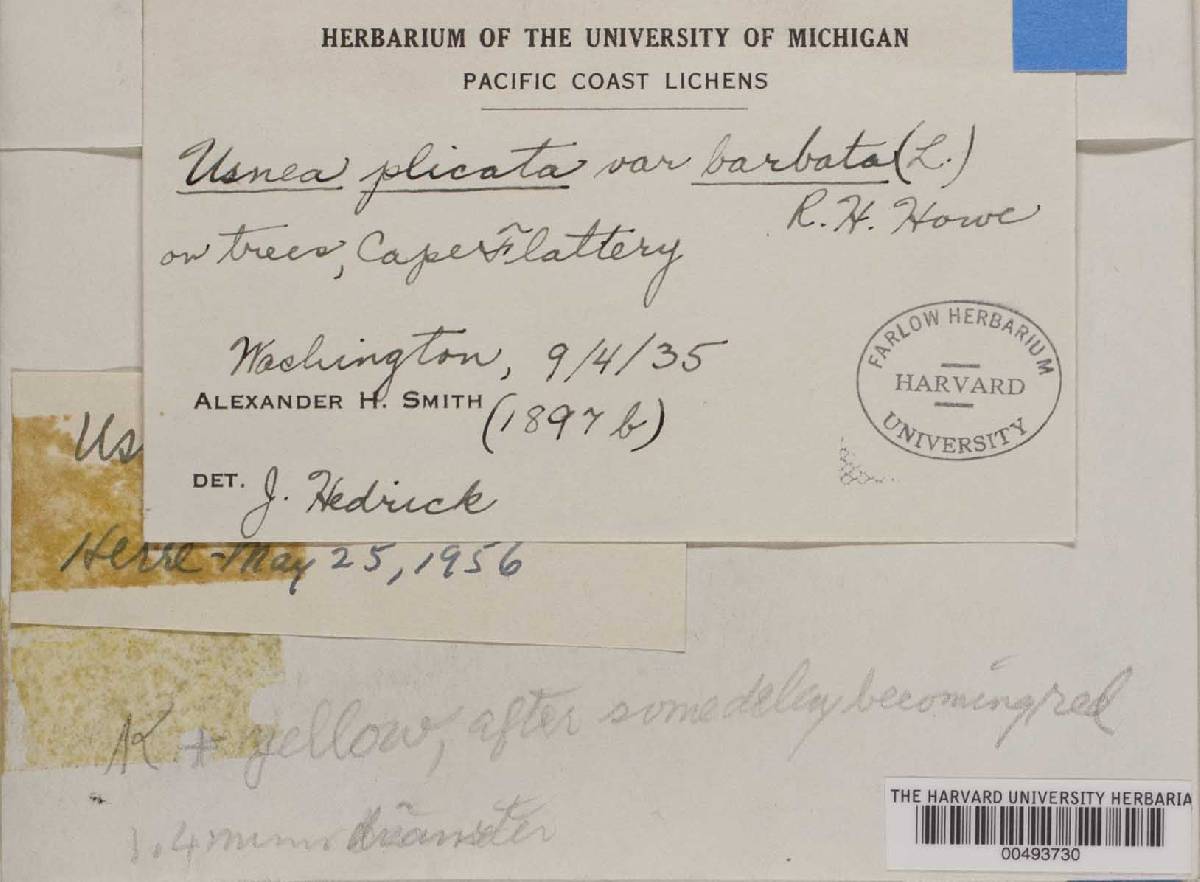 HERBARIUM OF THE UNIVERSITY OF MICHIGAN
PACIFIC COAST LICHENS
Usnea plicata var barbata (L.)
R. H. Howe
on trees, Cape Flattery
Washington, 9/4/35
ALEXANDER H. SMITH (1897 b)
DET. J. Hedrick
FARLOW HERBARIUM
HARVARD
UNIVERSITY
Us
Herre - May 25, 1956
K + yellow, after some delay becoming red
1.4 mm
THE HARVARD UNIVERSITY HERBARIA
00493730